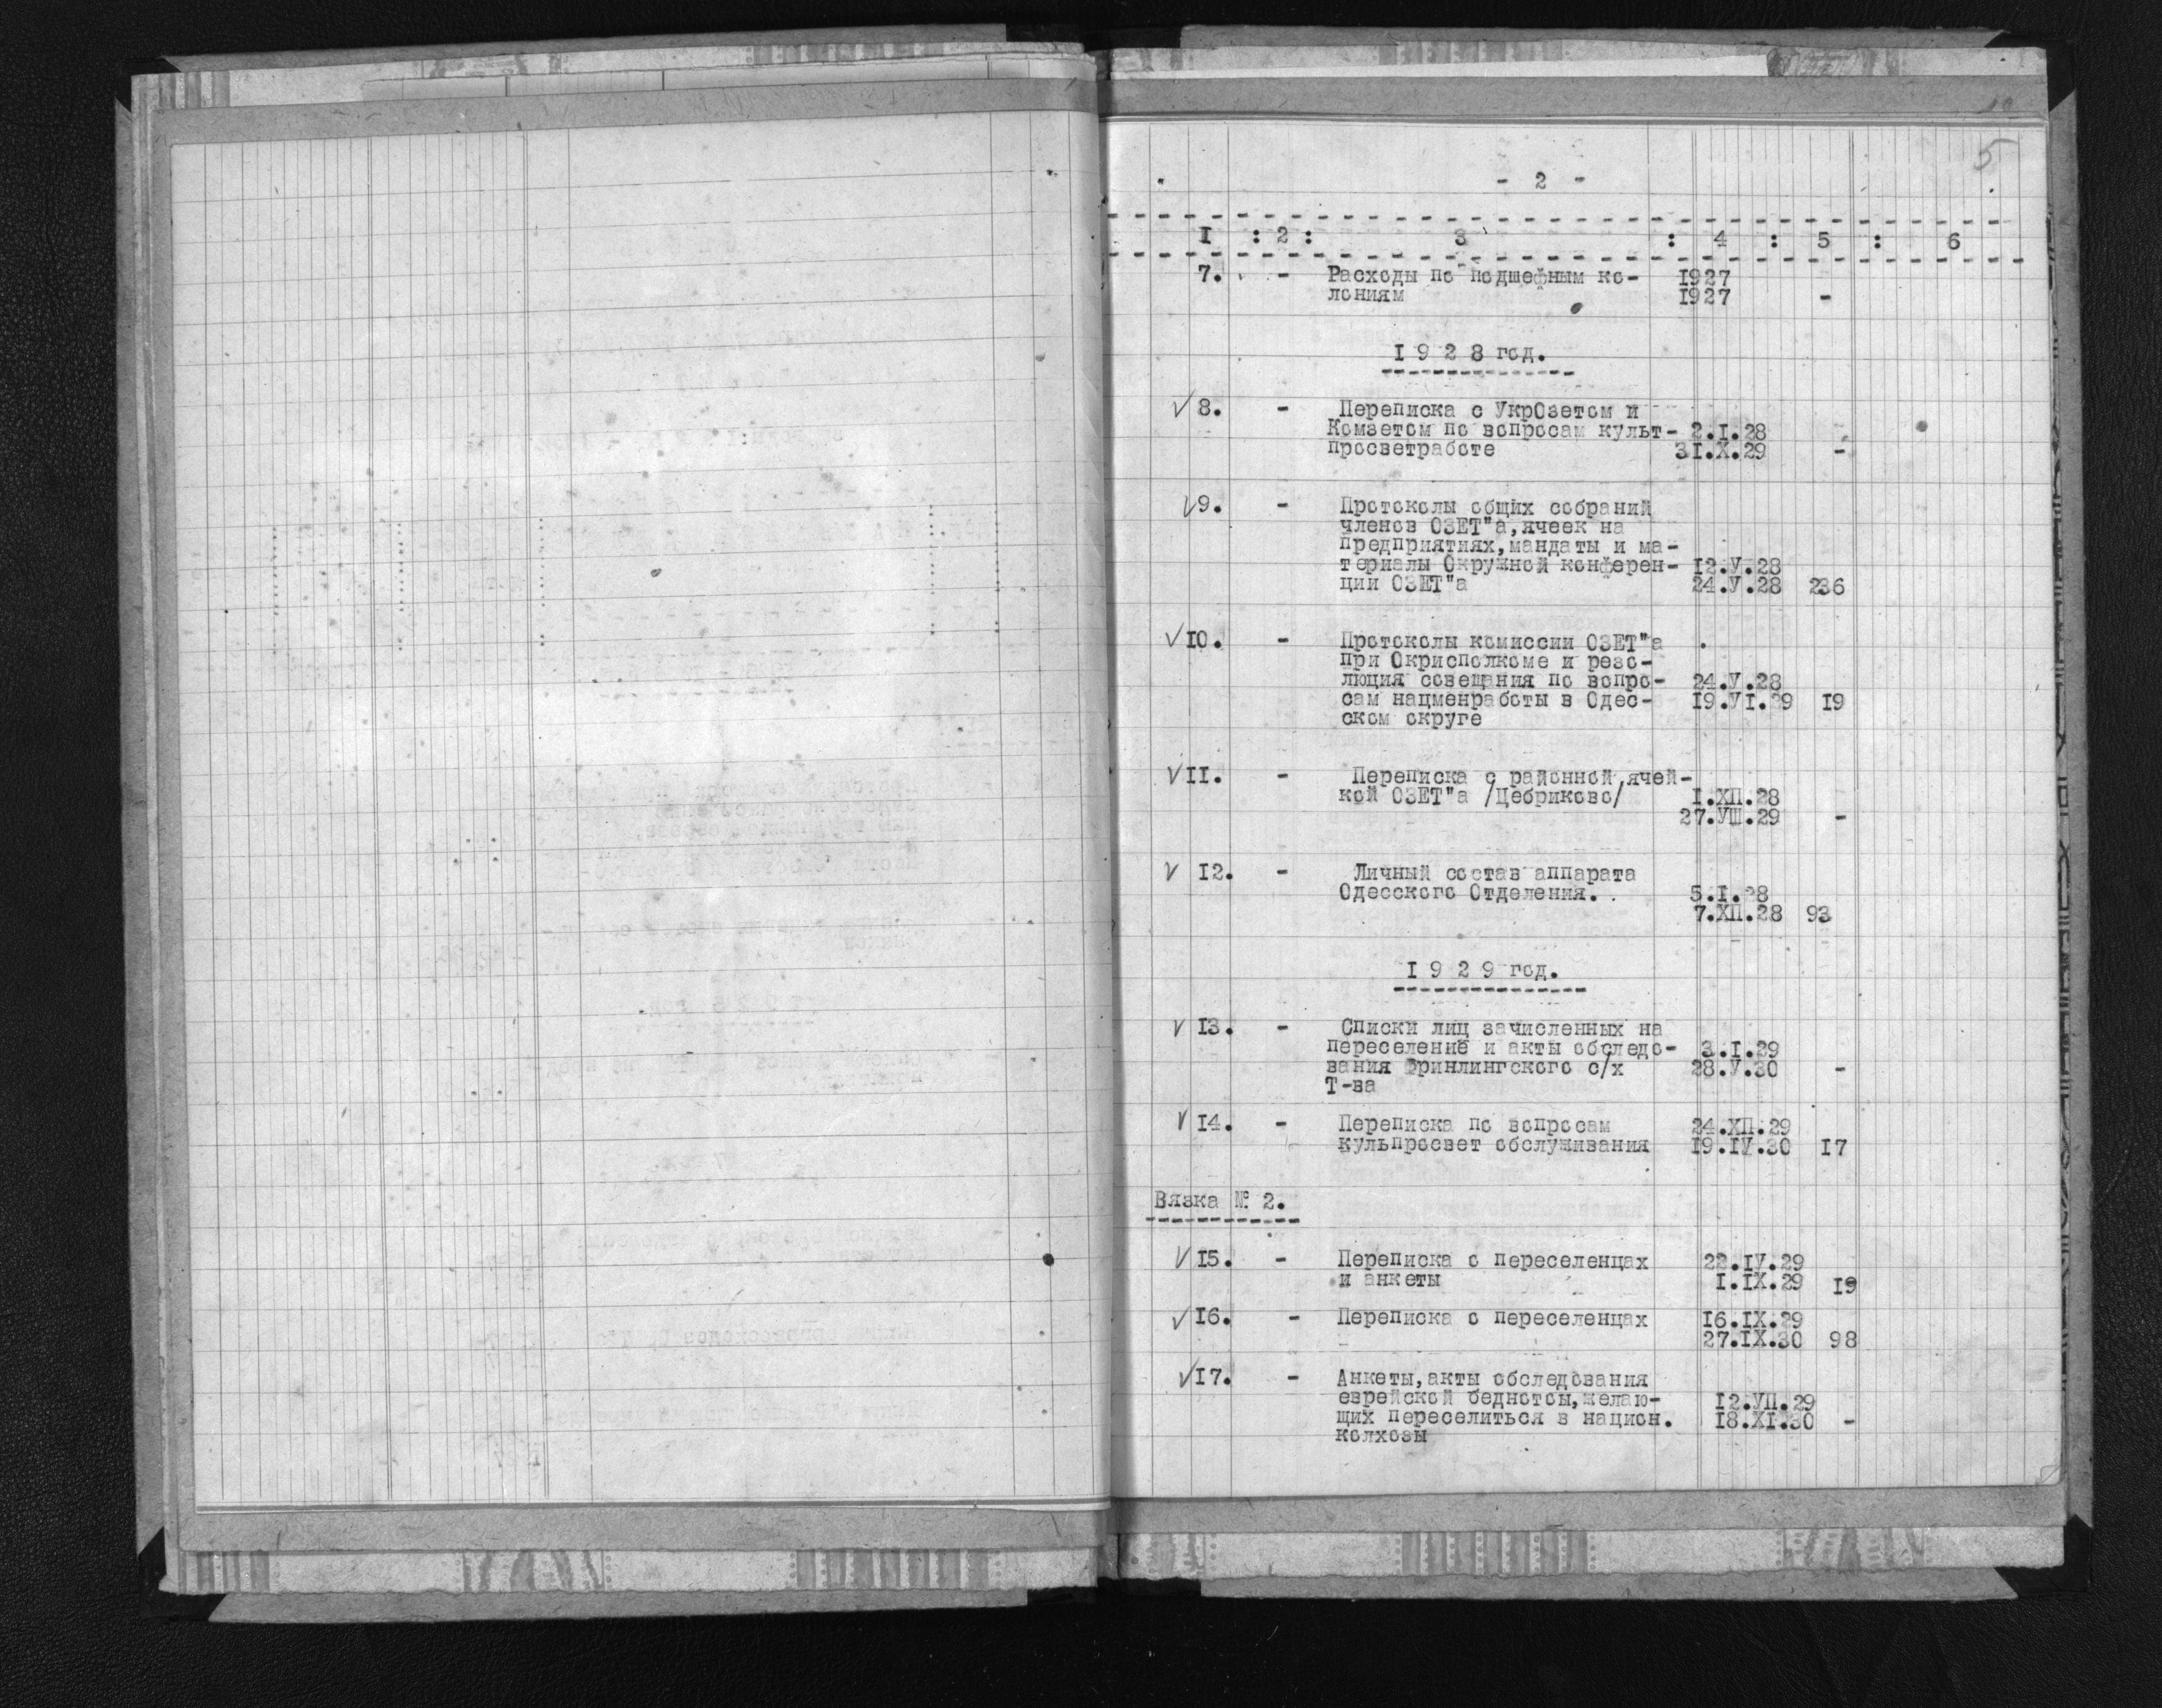 5
- 2 -
I : 2 : 3 : 4 : 5 : 6
7. - Расходы по подшефным ко- 1927
лониям 1927 -
I 9 2 8 год.
√ 8. - Переписка с УкрОзетом и
Комзетом по вопросам культ- 2.I.28
просветработе 3I.X.29 -
√ 9. - Протоколы общих собраний
членов ОЗЕТ"а, ячеек на
предприятиях, мандаты и ма-
териалы Окружной конферен- I2.У.28
ции ОЗЕТ"а 24.У.28 236
√ I0. - Протоколы комиссии ОЗЕТ"а
при Окрисполкоме и резо-
люция совещания по вопро- 24.У.28
сам нацменработы в Одес- I9.УI.29 I9
ском округе
√ II. - Переписка с районной ячей-
кой ОЗЕТ"а /Цебриково/ I.ХП.28
27.УШ.29 -
√ I2. - Личный состав аппарата
Одесского Отделения. 5.I.28
7.ХП.28 93
I 9 2 9 год.
√ I3. - Списки лиц зачисленных на
переселение и акты обследо- 3.I.29
вания Фринлингского с/х 28.У.30 -
Т-ва
√ I4. - Переписка по вопросам 24.ХП.29
кульпросвет обслуживания I9.IУ.30 I7
Вязка № 2.
√ I5. - Переписка с переселенцах 22.IУ.29
и анкеты I.IX.29 I9
√ I6. - Переписка с переселенцах I6.IX.29
27.IX.30 98
√ I7. - Анкеты, акты обследования
еврейской беднотоы, желаю- I2.УП.29
щих переселиться в национ. I8.XI.30 -
колхозы